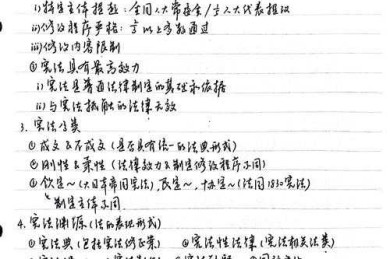 i) 特定主体提起：全国人大常委会/1/5人大代表提议
ii) 修改程序严格：2/3以上多数通过
iii) 修改内容限制
④ 宪法具有最高效力
i) 宪法是普通法律制定的基础和依据
ii) 与宪法抵触的法律无效
3. 宪法分类
① 成文&不成文 (是否具有统一的法典形式)
② 刚性&柔性 (法律效力&制定修改程序不同)
③ 钦定~(大日本帝国宪法), 民定~, 协定~(法国1830宪法)
制定主体不同
4. 宪法渊源 (法的表现形式)
① 宪法典 (包括宪法修正案) ② 宪法性法律 (宪法相关法类)